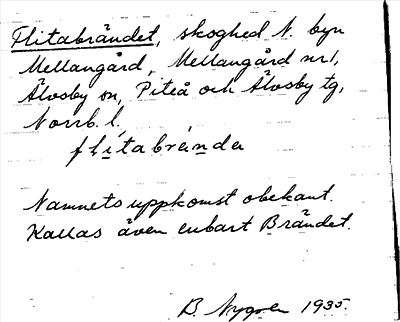 Flitabrändet, skoghed N. byn
Mellangård, Mellangård nr 1,
Älvsby sn, Piteå och Älvsby tg,
Norrb. l.
flítabrénda
Namnets uppkomst obekant.
Kallas även enbart Brändet.
B. Nygren 1935.